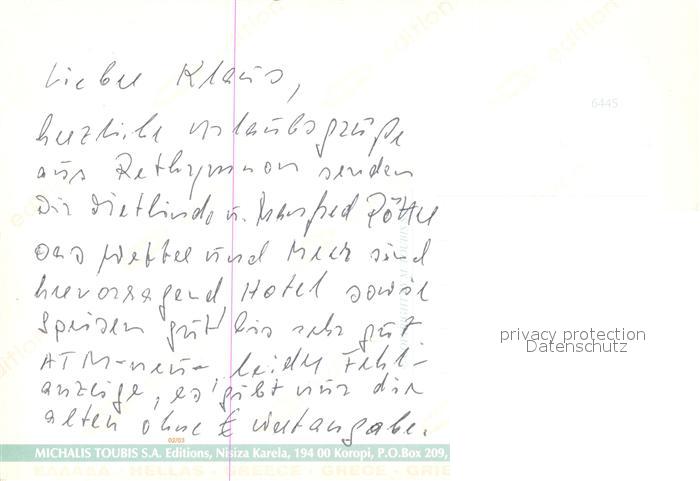 Lieber Klaus,
6445
herzliche Urlaubsgrüße
aus Rethymnon senden
Dir Dietlinde u. Manfred
Das Wetter und Meer sind
hervorragend Hotel sowie
Speisen gut bis sehr gut
privacy protection
Datenschutz
ATM-neu- leider Fehl-
anzeige, es gibt nur die
alten ohne € Wertangabe.
02/03
MICHALIS TOUBIS S.A. Editions, Nisiza Karela, 194 00 Koropi, P.O.Box 209,
ΕΛΛΑΔΑ - HELLAS - GREECE - GRECE - GRIE
edition